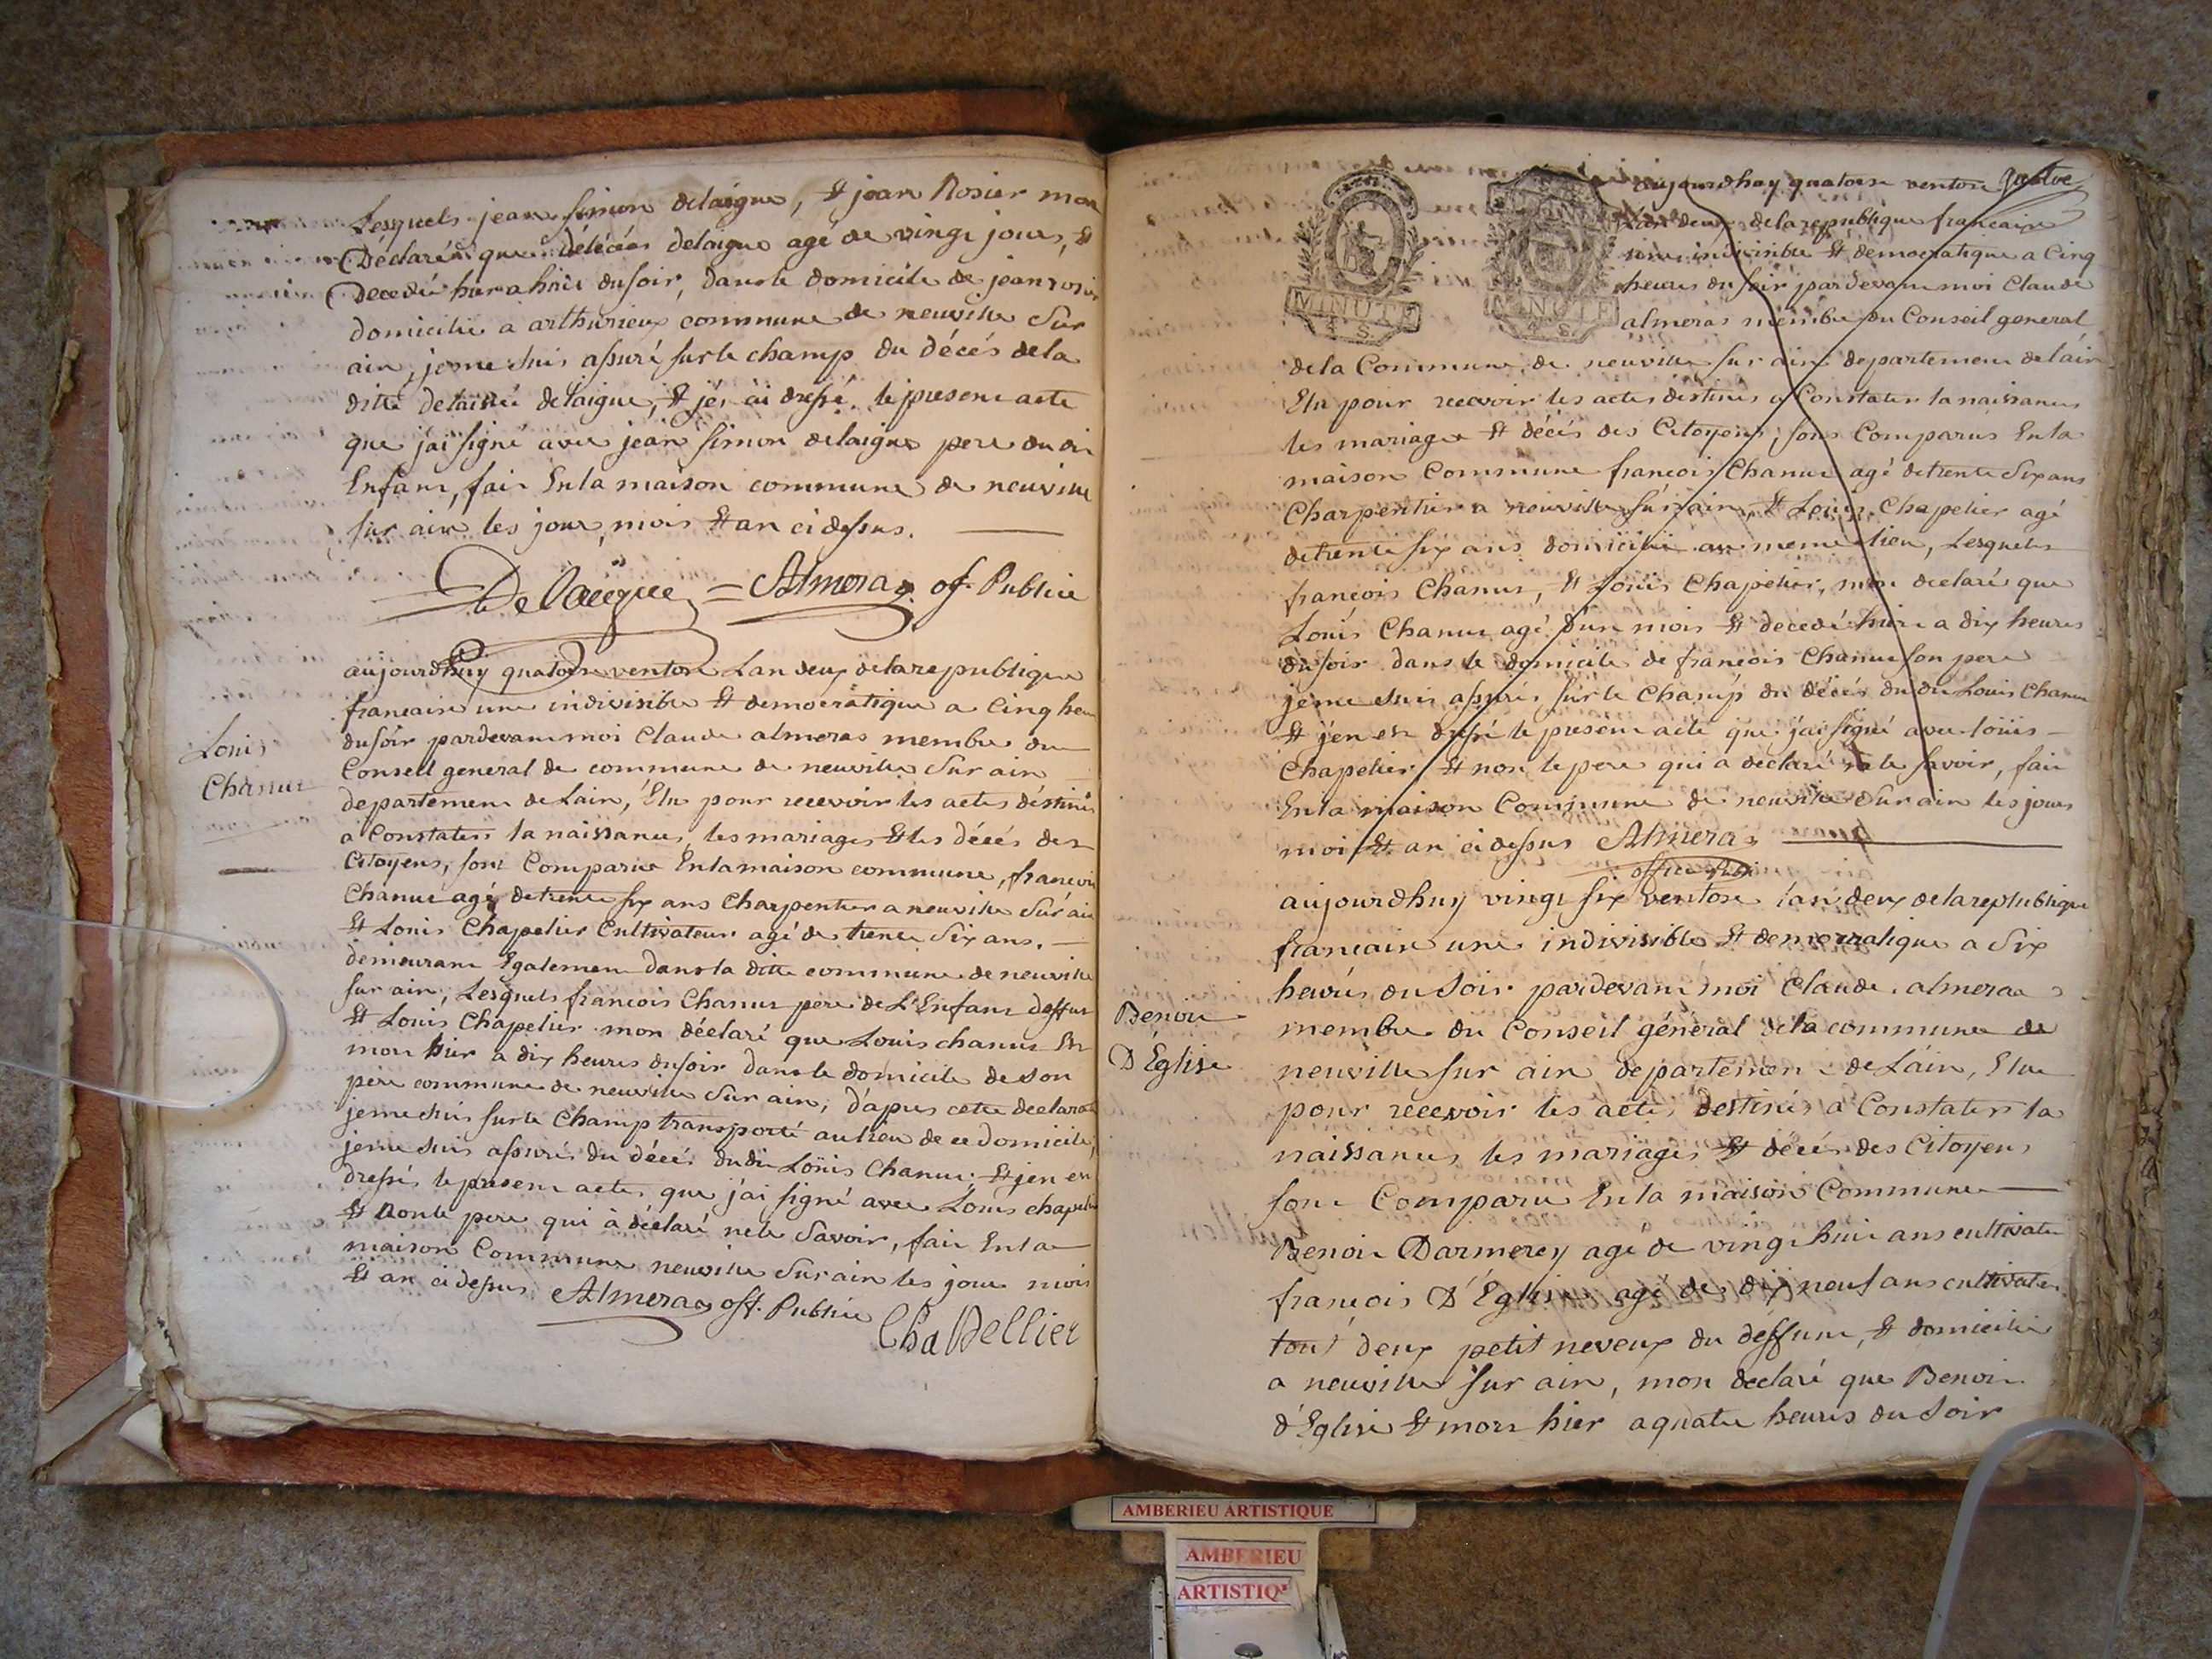 Lesquels jean simon delaigue, Et jean Rosier mon
Déclaré que délécée delaigue agé de vingt jours, Et
decedé hier a huit du soir, dans le domicile de jean rosier
domicilié a arthurieux commune de neuville Sur
ain, je me suis assuré sur le champ du décés de la
ditte delaissé delaigue, Et j'en ai dressé le present acte
que j'ai signé avec jean simon delaigue pere du dit
Enfant, fait En la maison commune de neuville
sur ain les jour, mois Et an ci dessus.
Delaigue = Almeras of. Public
aujourdhuy quatorse ventose Lan deux de la republique
francaise une indivisible Et democratique a Cinq heu
du soir pardevant moi Claude almeras membre du
Conseil general de commune de neuville Sur ain
departement de Lain, Elu pour recevoir les actes déstinés
a Constater la naissance, les mariages Et les décés des
Citoyens, sont Comparus En la maison commune, francois
Chanut agé de trente six ans Charpentier a neuville Sur ain
Et Louis Chapelier Cultivateur agé de trente Six ans.
demeurant Egalement dans la ditte commune de neuville
sur ain, Lesquels francois Chanut pere de L'Enfant deffunt
Et Louis Chapelier mon déclaré que Louis chanut Est
mort hier a dix heures du soir dans le domicile de son
père commune de neuville Sur ain, d'apres cette declaration
je me suis sur le Champ transporté au lieu de ce domicile,
je me suis assuré du décés dudit Loüis Chanut, Et j'en en
dressé le present acte, que j'ai signé avec Louis chapelier
Et non le pere qui à déclaré ne le Savoir, fait En la
maison Commune neuville Sur ain les jour mois
Et an ci dessus Almeras off. Public
ChaPellier
Louis
Chanut
MINUTE
4 S.
MINUTE
4 S.
aujourdhuy quatorse ventose
Lan deux de la republique francaise
une indivisible Et democratique a Cinq
heures du soir pardevant moi Claude
almeras membre du Conseil general
de la Commune de neuville sur ain departement de lain
Elu pour recevoir les actes destinés a Constater la naissance
les mariages Et décés des Citoyens, sont Comparus En la
maison Commune francois Chanut agé de trente Six ans
Charpentier a neuville sur ain, Et Louis Chapelier agé
de trente six ans domicilié au meme lieu, Lesquels
francois Chanut, Et Loüis Chapelier, mon declaré que
Louis Chanut agé d'un mois Et decedé hier a dix heures
du soir dans le domicile de francois Chanut son pere
je me suis assuré sur le Champ du décés du dit Louis Chanut
Et j'en est dressé le present acte que j'ai signé avec loüis
Chapelier Et non le pere qui a declaré ne le savoir, fait
En la maison Commune de neuville Sur ain les jours
moi Et an ci dessus Almeras
officier Public
aujourdhuy vingt six ventose l'an deux de la republique
francaise une indivisible Et democratique a Six
heures du Soir pardevant moi Claude almeras
membre du Conseil général de la commune de
neuville sur ain departement de Láin, Elu
pour recevoir les actes destinés a Constater la
naissance, les mariages Et décés des Citoyens
sont Comparu En la maison Commune
Benoit Darmerey agé de vingt huit ans cultivateur
francois D'Eglise agé de dix neuf ans cultivateur
tout deux petit neveux du deffunt, Et domicilié
a neuville sur ain, mon declaré que Benoit
d'Eglise Et mort hier a quatre heures du Soir
Benoit
D'Eglise
AMBERIEU ARTISTIQUE
AMBERIEU
ARTISTIQ